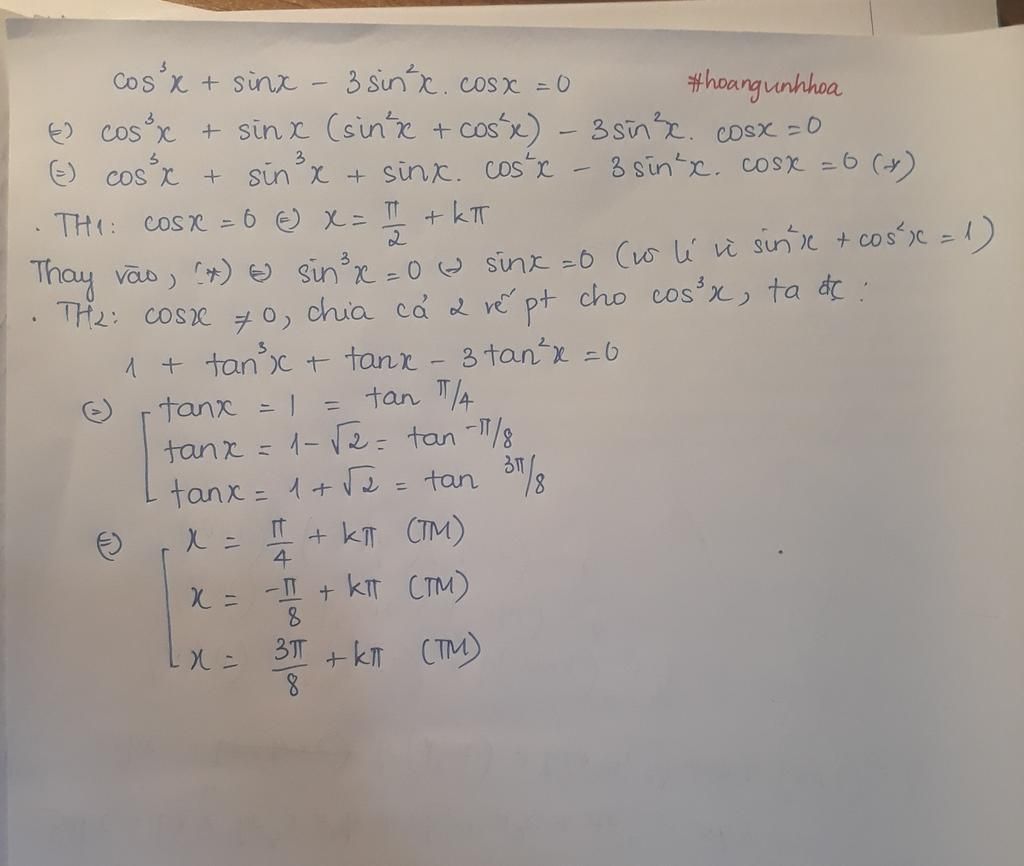 cos³x + sinx − 3 sin²x. cosx = 0 #hoangunhhoa
(=) cos³x + sinx (sin²x + cos²x) − 3sin²x. cosx = 0
(=) cos³x + sin³x + sinx. cos²x − 3 sin²x. cosx = 0 (*)
. TH1: cosx = 0 (=) x = π/2 + kπ
Thay vào, (*) (=) sin³x = 0 (=) sinx = 0 (vô lí vì sin²x + cos²x = 1)
. TH2: cosx ≠ 0, chia cả 2 vế pt cho cos³x, ta đc :
1 + tan³x + tanx − 3 tan²x = 0
(=) [ tanx = 1 = tan π/4
tanx = 1 − √2 = tan −π/8
tanx = 1 + √2 = tan 3π/8
(=) [ x = π/4 + kπ (TM)
x = −π/8 + kπ (TM)
x = 3π/8 + kπ (TM)